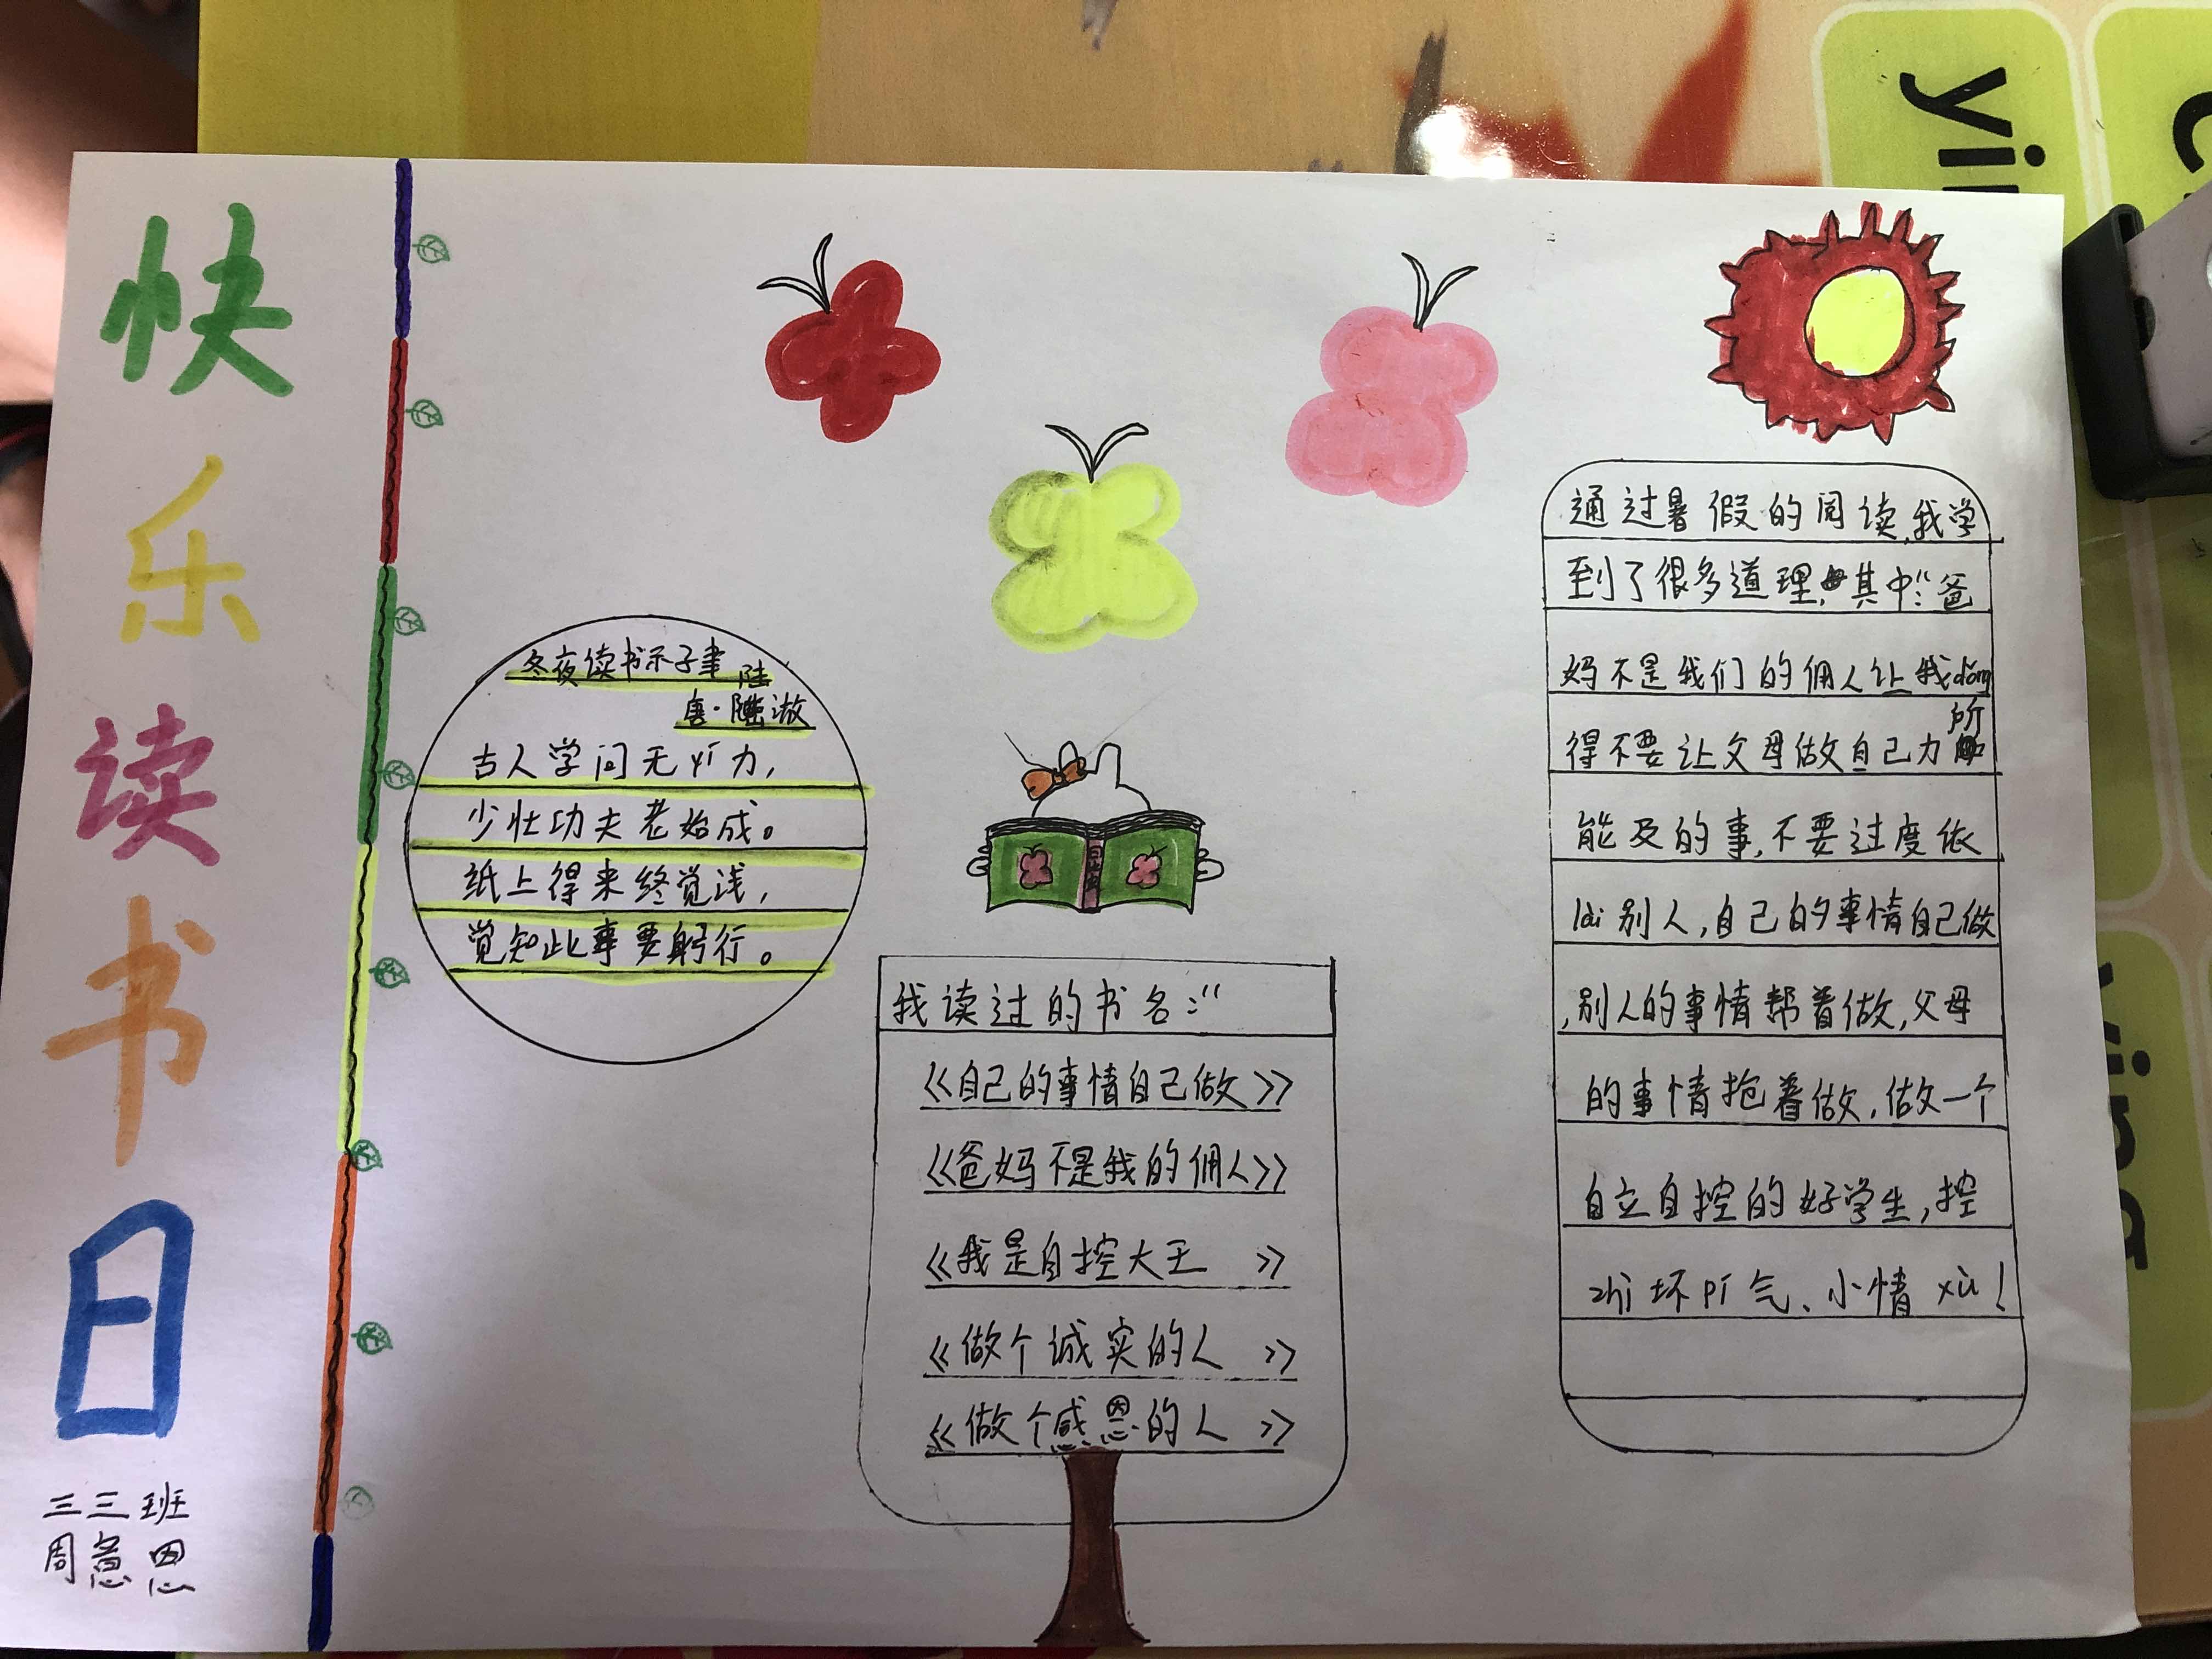 快
乐
读
书
日
三三班
冬夜读书示子聿
陆
唐·陆游
古人学问无yí力，
少壮功夫老始成。
纸上得来终觉浅，
觉知此事要躬行。
我读过的书名：“
《自己的事情自己做》
《爸妈不是我的佣人》
《我是自控大王 》
《做个诚实的人 》
《做个感恩的人 》
通过暑假的阅读，我学
到了很多道理，其中：“爸
妈不是我们的佣人让我dǒng
得不要让父母做自己力所
能及的事，不要过度依
lài别人，自己的事情自己做
，别人的事情帮着做，父母
的事情抢着做，做一个
自立自控的好学生，控
zhì坏pí气、小情xù！
yin
ying